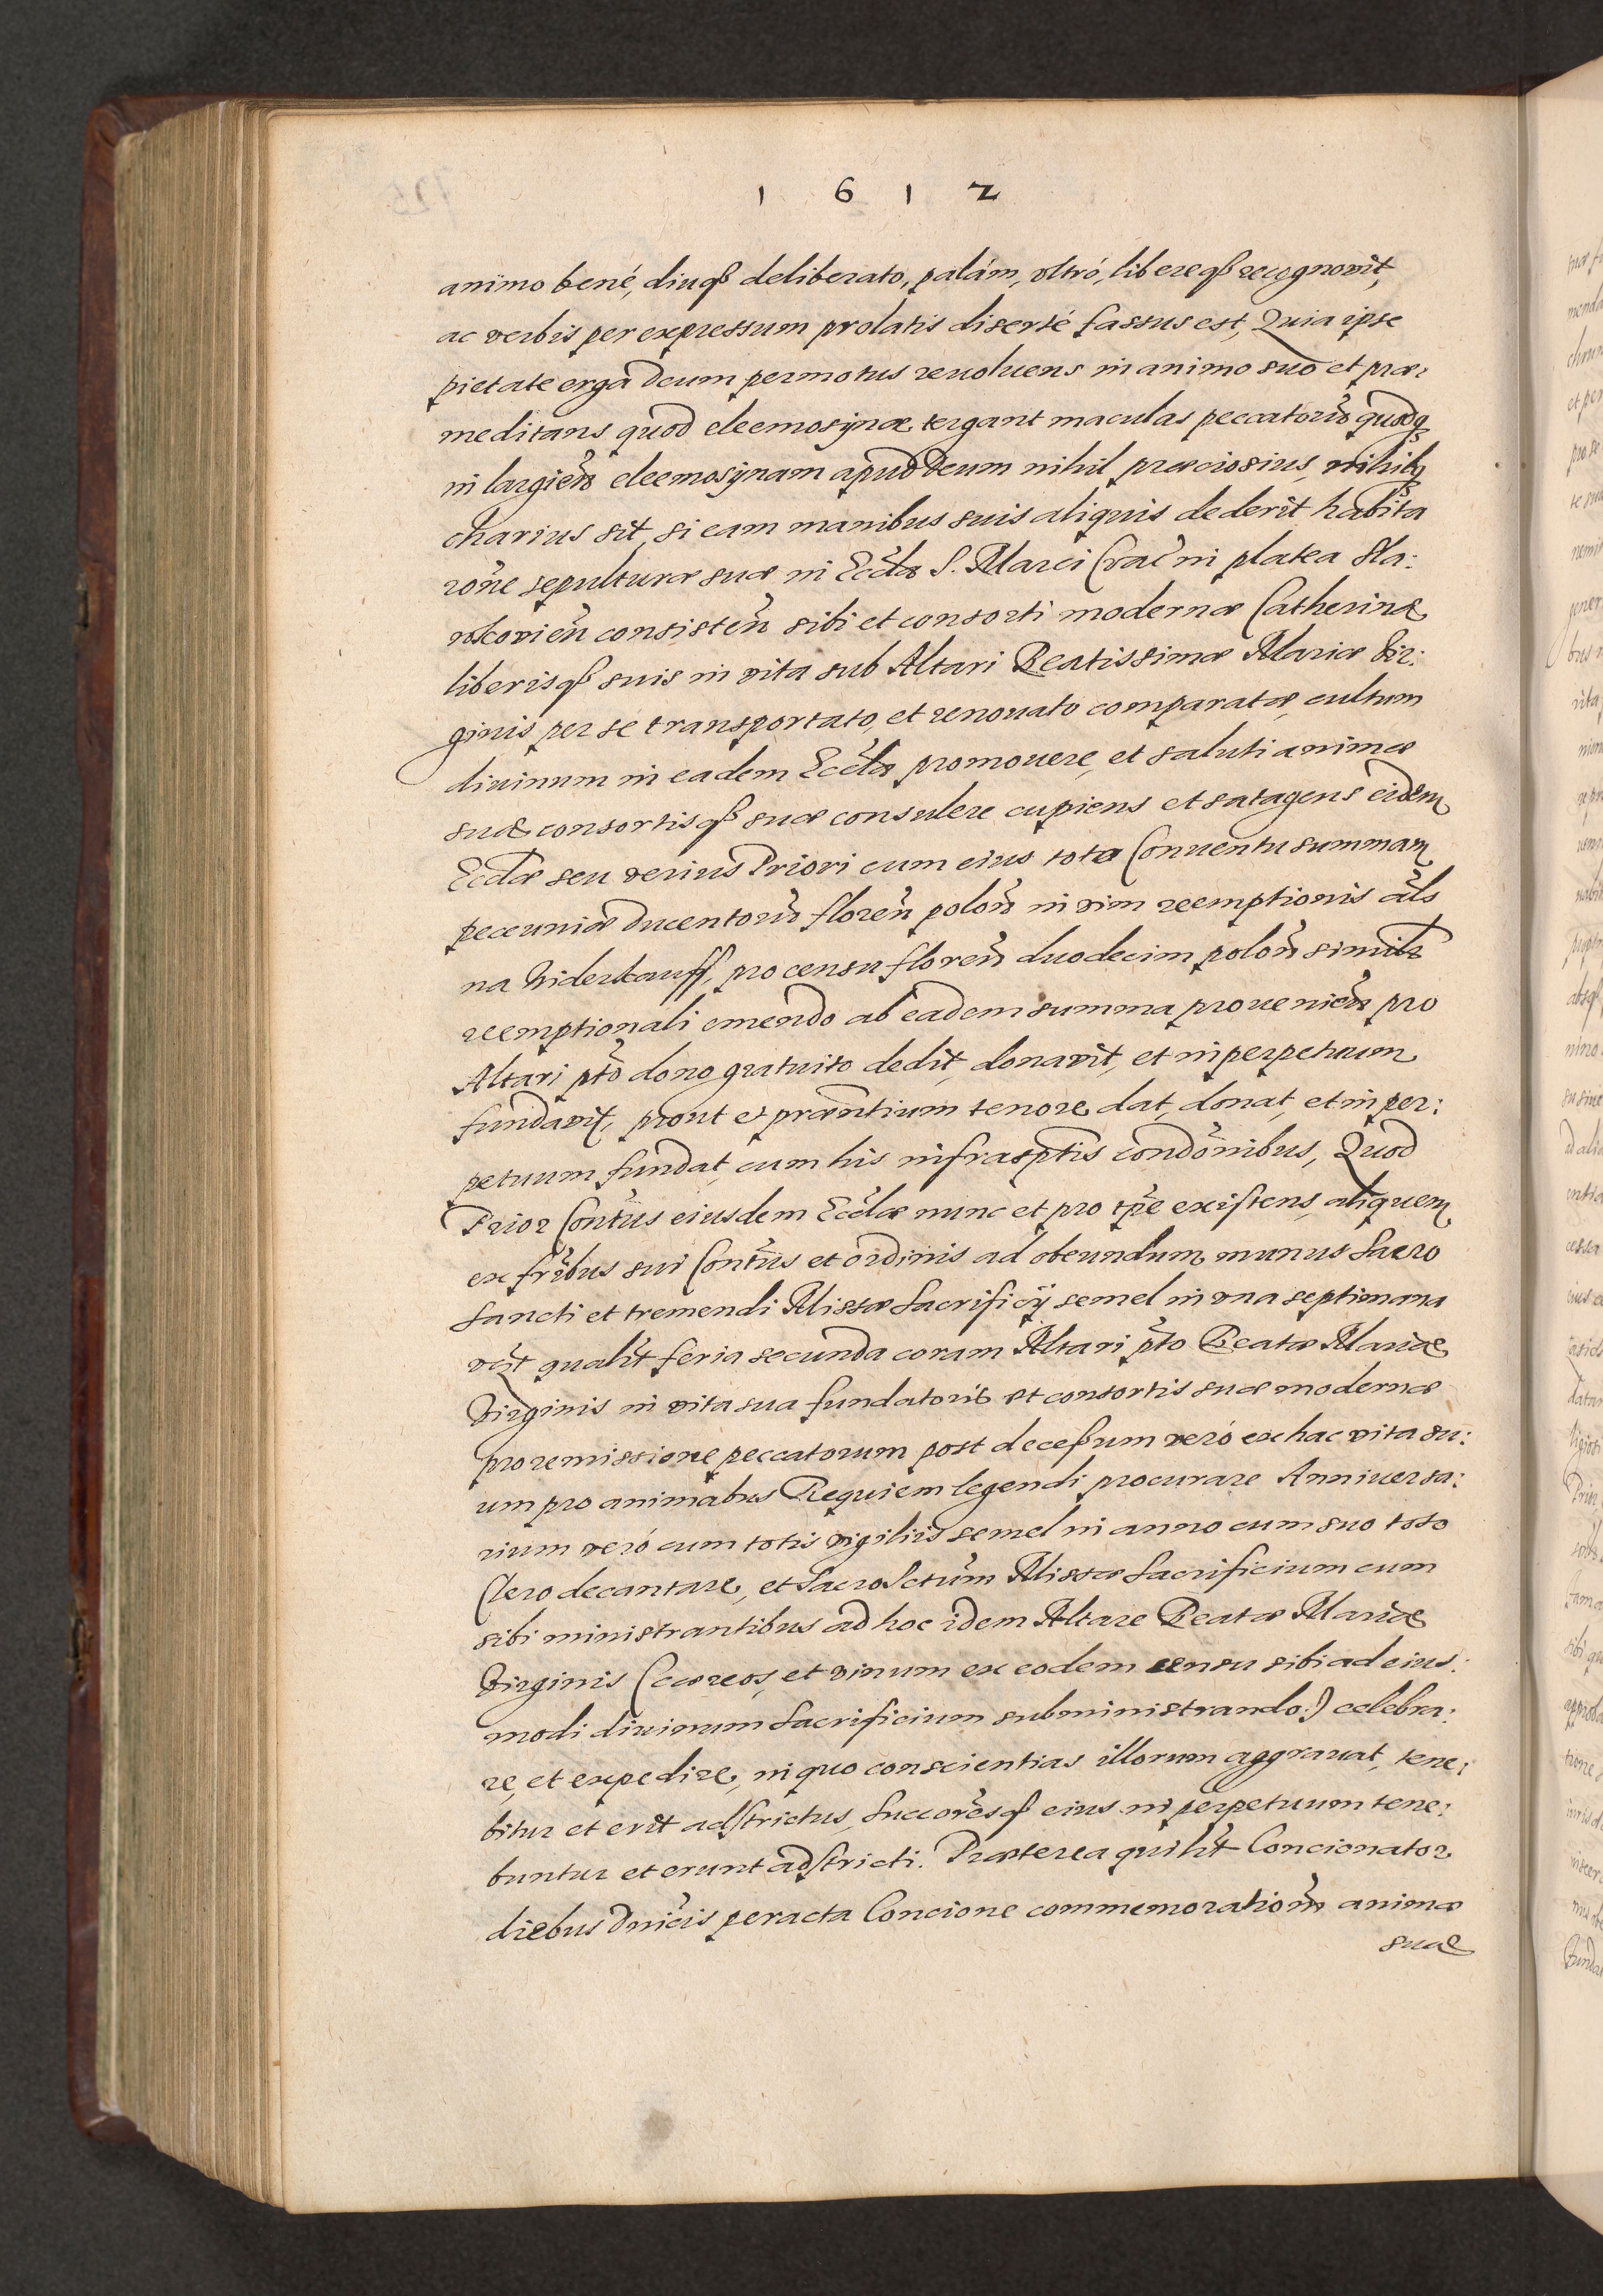 1 6 1 2
animo bené, diuq̃ deliberato, palám, vltró, libereq̃ recognovit,
ac verbis per expressum prolatis diserté fassus est, Quia ipse
pietate erga Deum permotus reuoluens in animo suo et præ:
meditans quod eleemosynæ tergant maculas peccatorũ quodq̃
in largieñ eleemosynam apud Deum nihil præciosius, nihilq̃
charius sit, si eam manibus suis aliquis dederit habita
roñe sepulturæ suæ in Ecclã S. Marci Crac̃ in platea Sla:
vkovieñ consisteñ sibi et consorti modernæ Catherinæ
liberisq̃ suis in vita sub Altari Beatissimæ Mariæ Vir:
ginis per se transportato, et renouato comparatæ, cultum
diuinum in eadem Ecclã promouere, et saluti animæ
suæ consortisq̃ suæ consulere cupiens et satagens eidem
Ecclæ seu verius Priori cum eius toto Conuentu summam
pecuniæ ducentorũ floreñ poloñ in vim reemptionis al̃s
na Widerkauff, pro censu floreñ duodecim poloñ similr̃
reemptionali emendo ab eadem summa prouenieñ pro
Altari pt̃o dono gratuito dedit, donavit, et in perpetuum
fundavit, prout et præntium tenore dat, donat, et in per:
petuum fundat, cum his infrasptis condonibus, Quod
Prior Contũs eiusdem Ecclæ nunc et pro tp̃e existens, aliquem
ex fribus sui Contũs et ordinis ad obeundum munus Sacro
Sancti et tremendi Missæ Sacrificÿ semel in vna septimana
vc̃t qualt̃ feria secunda coram Altari pt̃o Beatæ Mariæ
Virginis in vita sua fundatoris et consortis suæ modernæ
pro remissione peccatorum post decessum veró ex hac vita su:
um pro animabus Requiem legendi procurare Anniuersa:
rium veró cum totis vigiliis semel in anno cum suo toto
Clero decantare, et Sacro Sctũm Missæ Sacrificium cum
sibi ministrantibus ad hoc idem Altare Beatæ Mariæ
Virginis (cæreos, et vinum ex eodem censu sibi ad eius:
modi diuinum Sacrificium subministrando:) celebra:
re, et expedire, in quo conscientias illorum aggravat, tene:
bitur et erit adstrictus, Succoresq̃ eius in perpetuum tene:
buntur et erunt adstricti. Præterea quilt̃ Concionator
diebus Dnicis peracta Concione commemorationẽ animæ
suæ